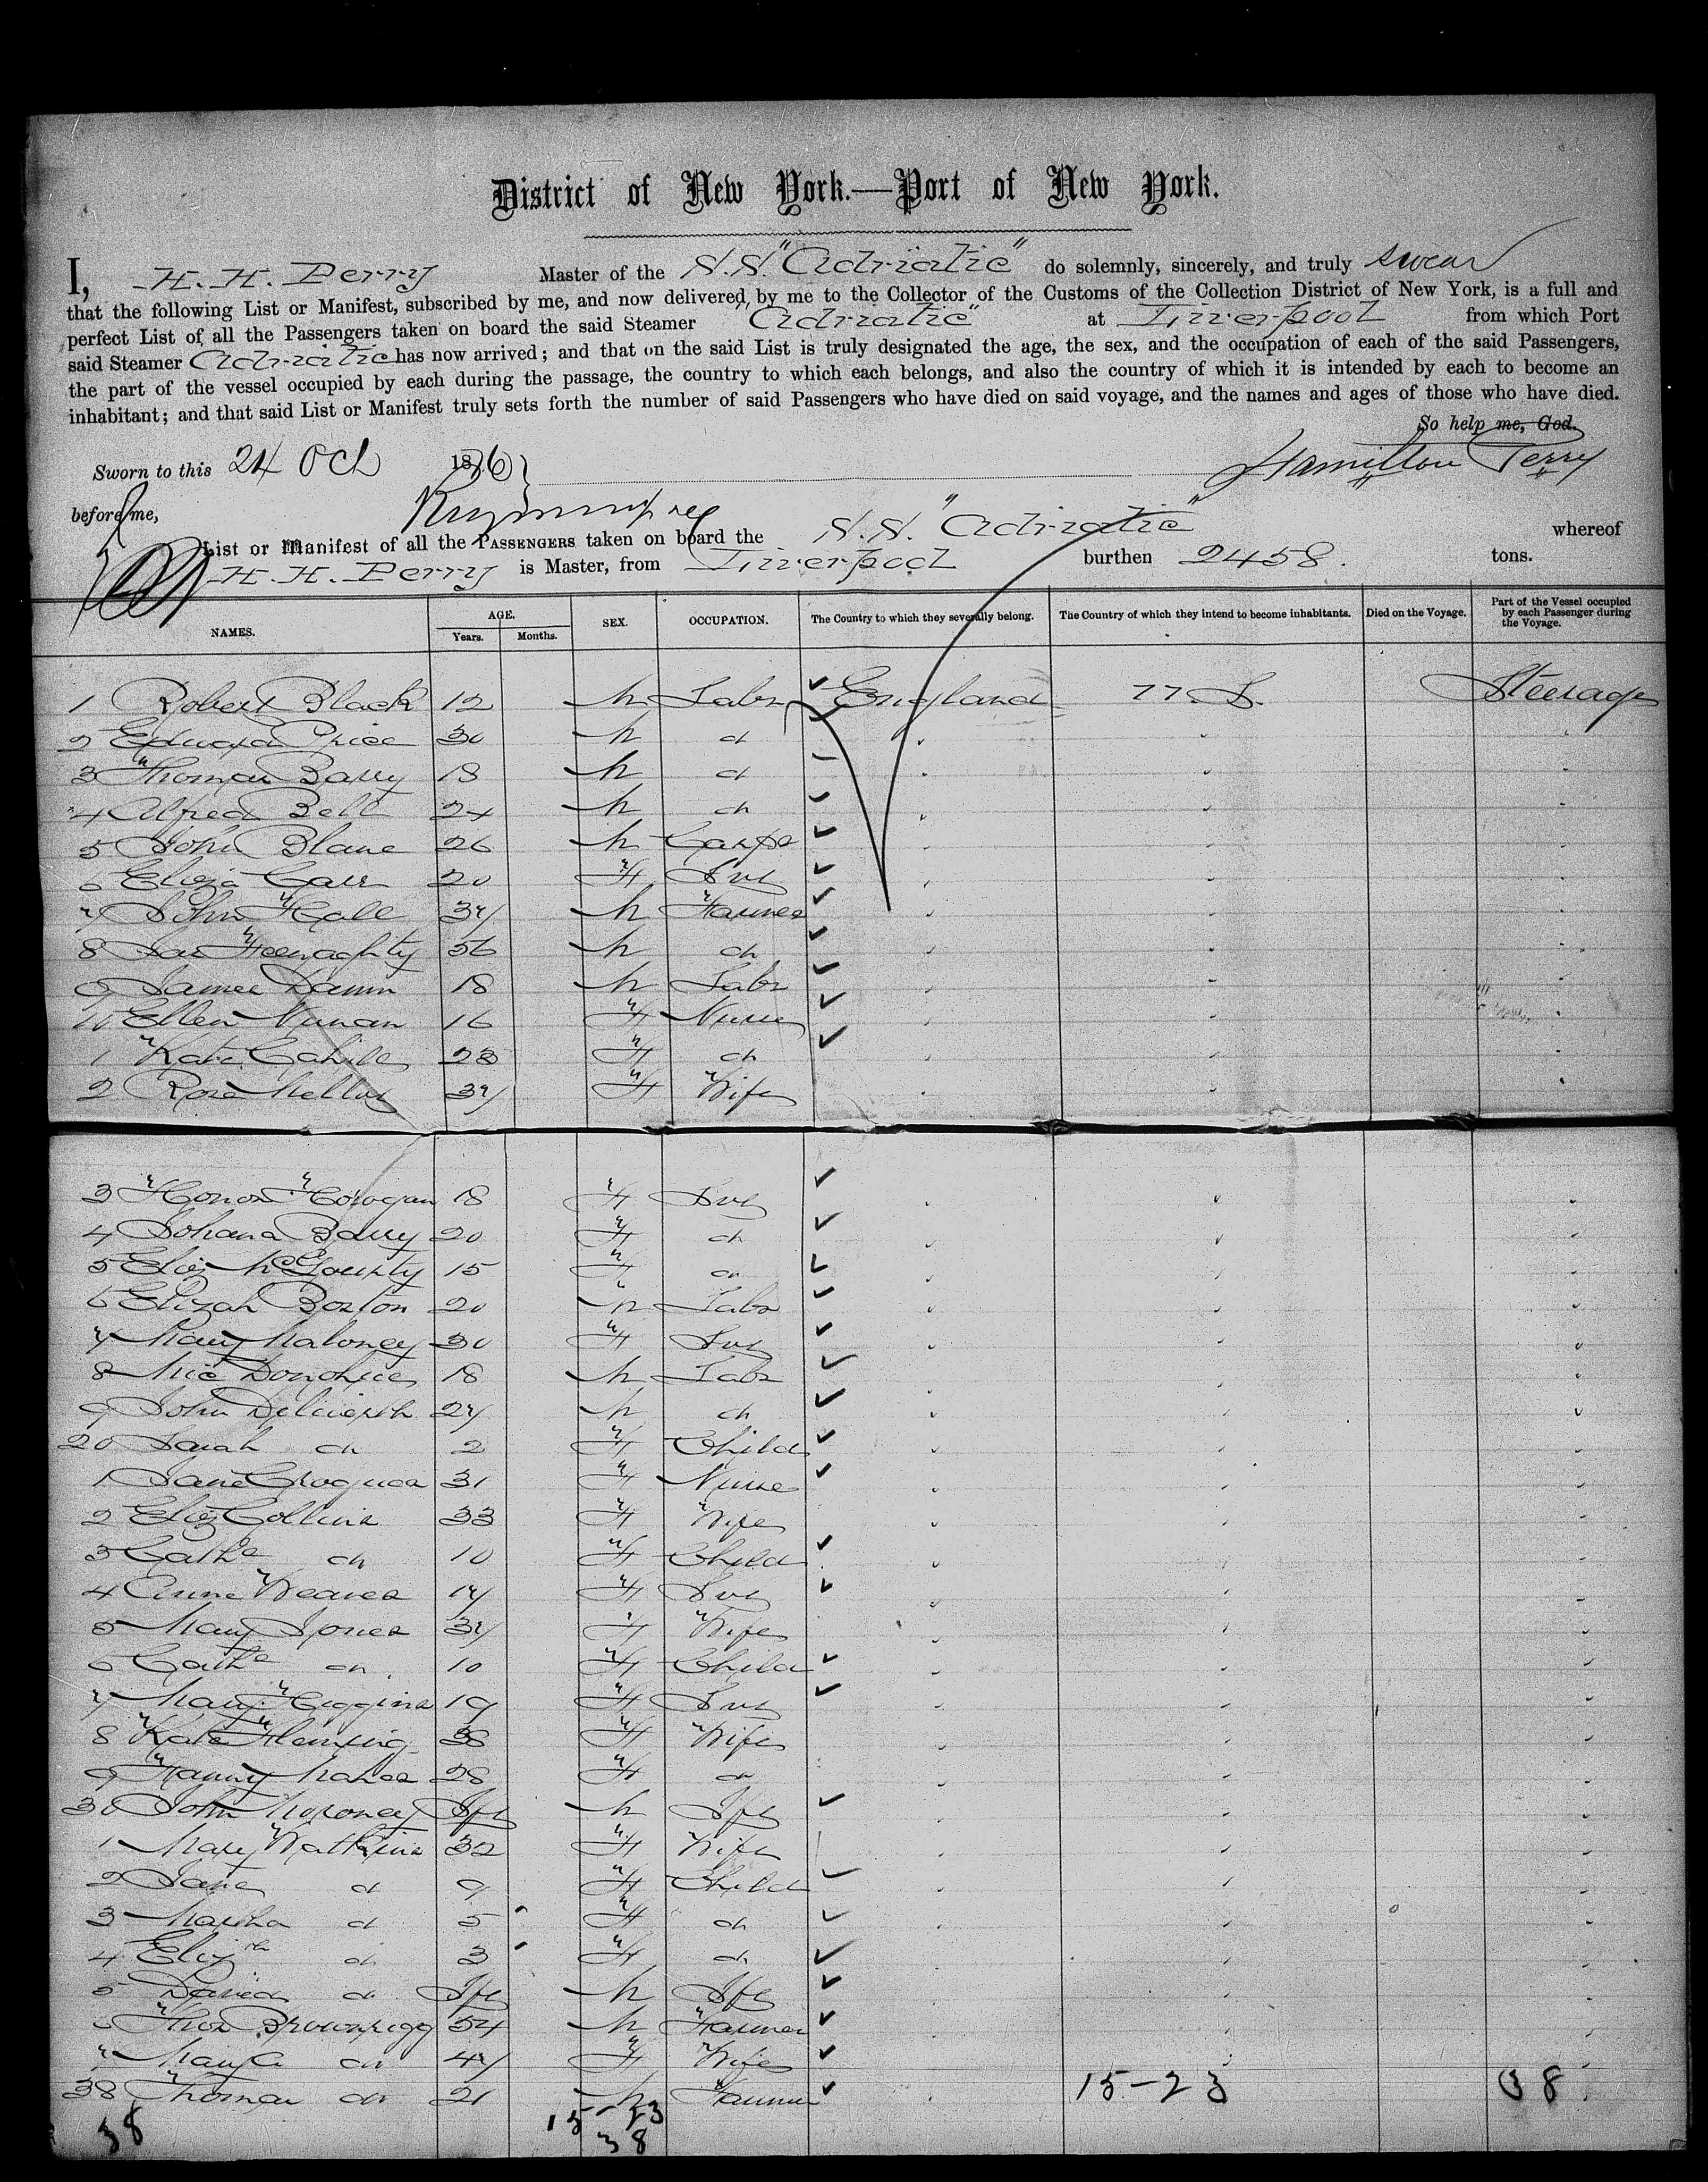 District of New York.—Port of New York.
I, H. H. Perry Master of the S.S. "Adriatic" do solemnly, sincerely, and truly swear
that the following List or Manifest, subscribed by me, and now delivered by me to the Collector of the Customs of the Collection District of New York, is a full and
perfect List of all the Passengers taken on board the said Steamer "Adriatic" at Liverpool from which Port
said Steamer Adriatic has now arrived; and that on the said List is truly designated the age, the sex, and the occupation of each of the said Passengers,
the part of the vessel occupied by each during the passage, the country to which each belongs, and also the country of which it is intended by each to become an
inhabitant; and that said List or Manifest truly sets forth the number of said Passengers who have died on said voyage, and the names and ages of those who have died.
So help me, God.
Sworn to this 24 Oct 1876 Hamilton Perry
before me,
List or Manifest of all the PASSENGERS taken on board the S.S. "Adriatic" whereof
H. H. Perry is Master, from Liverpool burthen 2458. tons.
NAMES. AGE. Years. Months. SEX. OCCUPATION. The Country to which they severally belong. The Country of which they intend to become inhabitants. Died on the Voyage. Part of the Vessel occupied by each Passenger during the Voyage.
1 Robert Black 12 M Labr England U.S. Steerage
2 Edward Price 30 M do
3 Thomas Barry 18 M do
4 Alfred Bell 24 M do
5 John Blane 26 M Carpr
6 Eliza Carr 20 F Svt
7 John Hall 37 M Farmer
8 Jas Heenaghty 56 M do
9 James Dannn 18 M Labr
10 Ellen Nunan 16 F Nurse
1 Kate Cahill 28 F do
2 Rose Melloy 37 F Wife
3 Honor Horogan 18 F Svt
4 Johana Barry 20 F do
5 Eliz McGourty 15 F do
6 Elizah Boston 20 M Labr
7 Mary Maloney 30 F Svt
8 Mic Donohue 18 M Labr
9 John Dilworth 27 M do
20 Sarah do 2 F Child
1 Jane 31 F Nurse
2 Eliz Collins 33 F Wife
3 Cathe do 10 F Child
4 Anne Weaver 17 F Svt
5 Mary Jones 37 F Wife
6 Cathe do 10 F Child
7 Mary Higgins 19 F Svt
8 Kate Fleming 38 F Wife
9 Fanny Maher 28 F do
30 John Moroney Ift M Ift
1 Mary Watkins 32 F Wife
2 Jane do 9 F Child
3 Martha do 5 F do
4 Elizth do 3 F do
5 David do Ift M Ift
6 Thos Brownrigg 54 M Farmer
7 Mary A do 47 F Wife
38 Thomas do 21 M Farmer 15-23 38
38 15-23
38